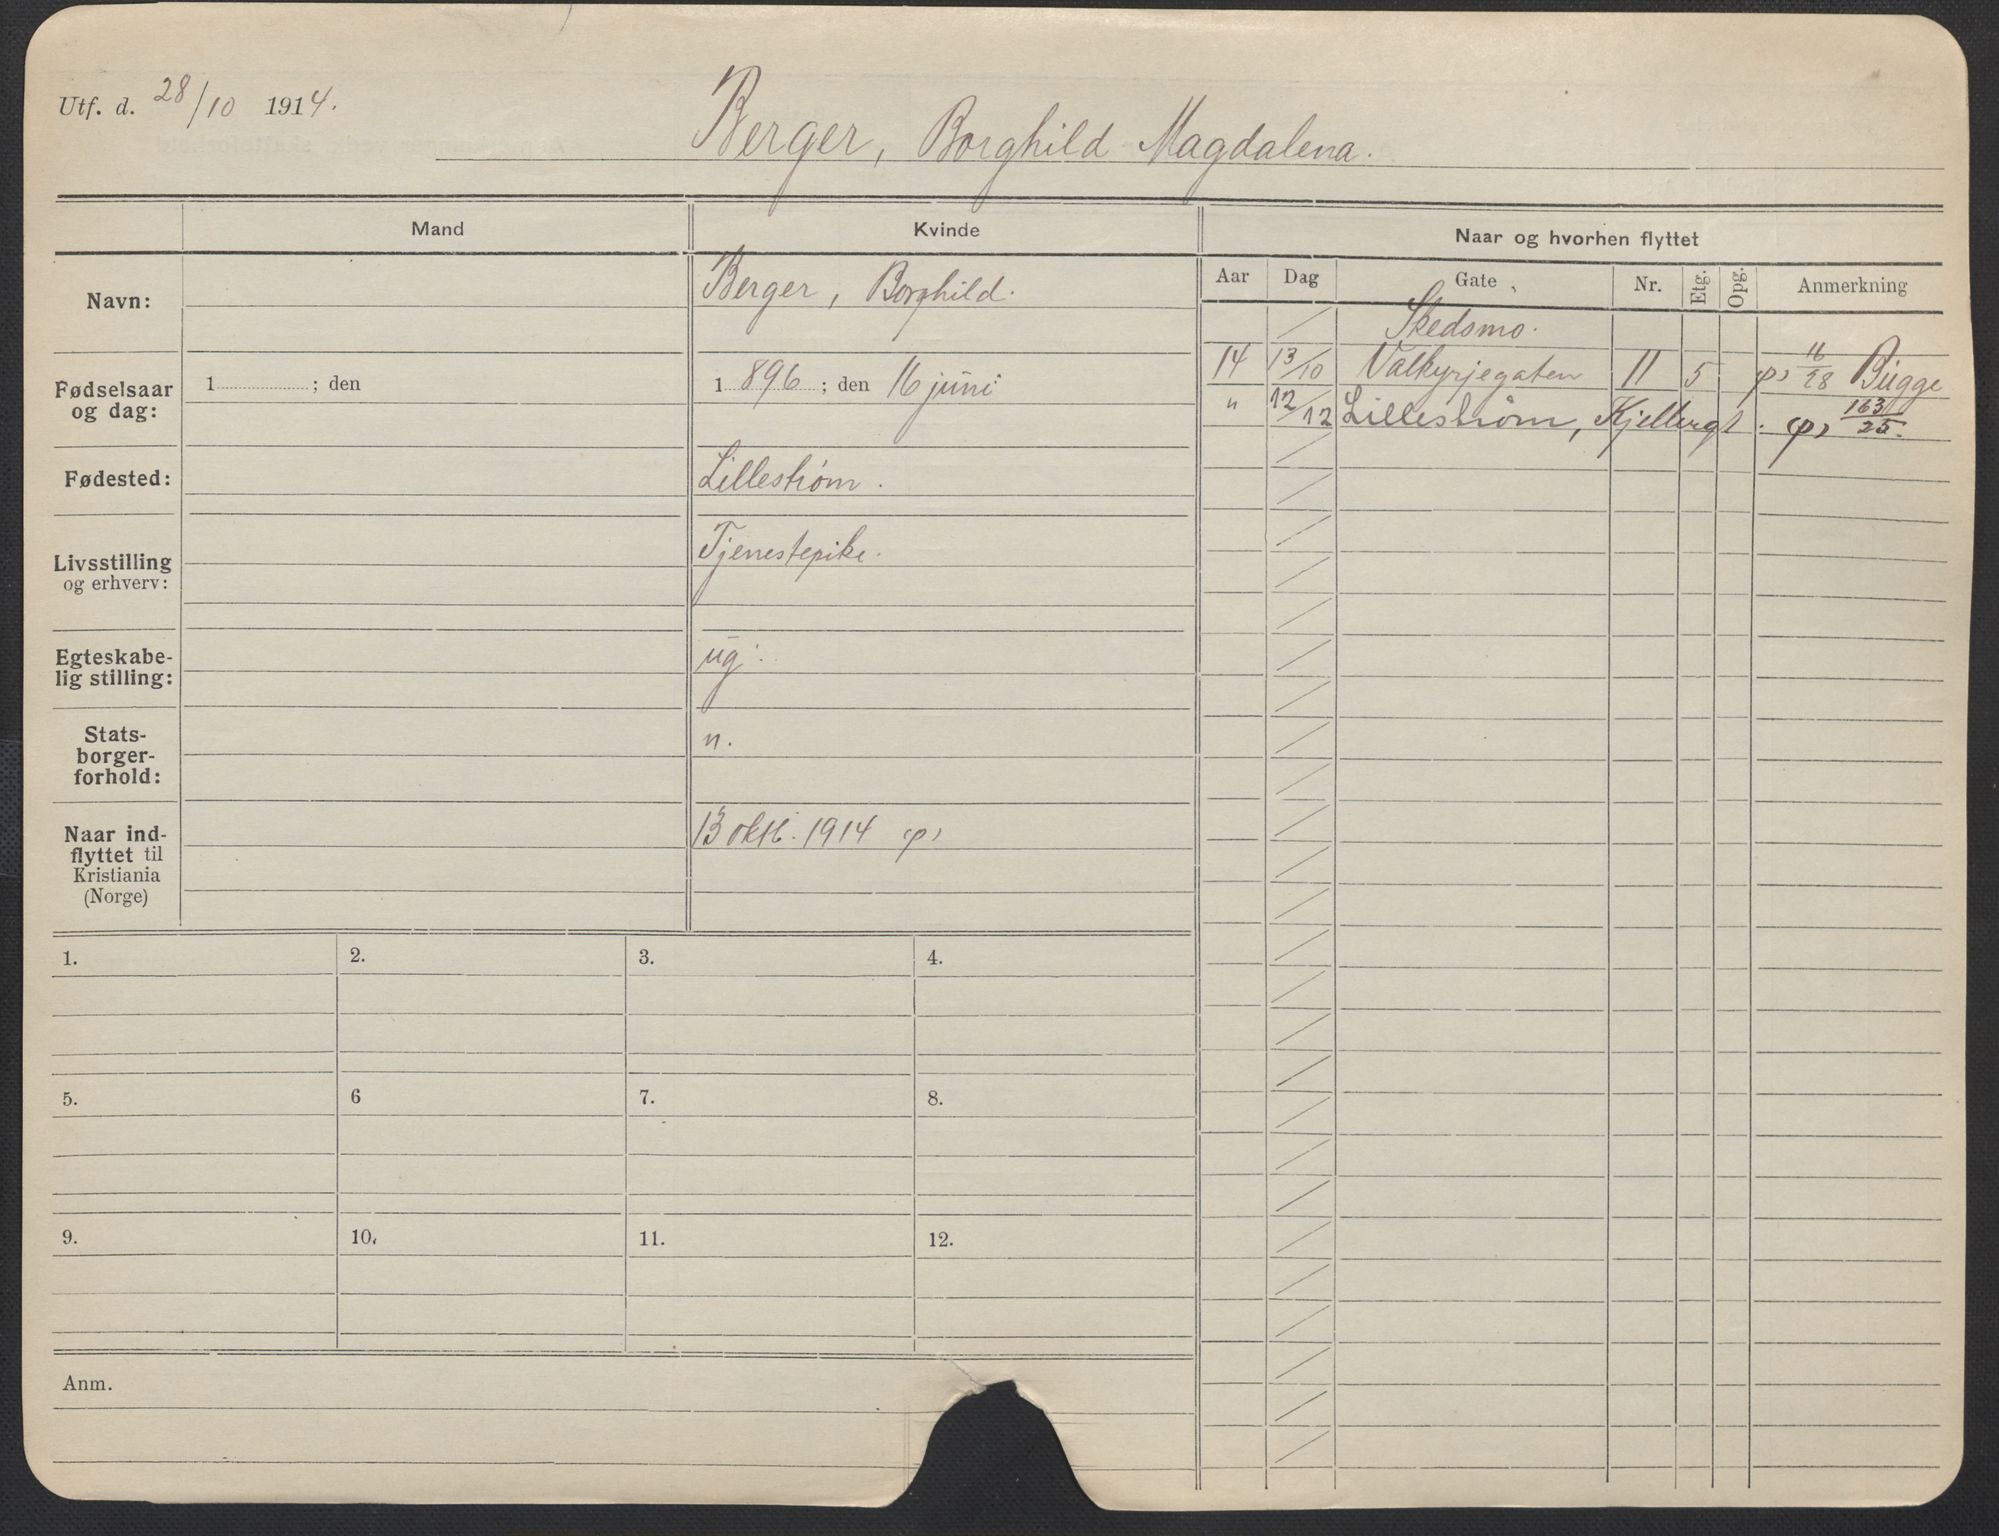 Utf. d. 28/10 1914.
Berger, Borghild Magdalena.
Mand
Kvinde
Naar og hvorhen flyttet
Navn:
Berger, Borghild.
Fødselsaar og dag:
1 ; den
1 896 ; den 16 juni
Fødested:
Lillestrøm.
Livsstilling
og erhverv:
Tjenestepike.
Egteskabe-
lig stilling:
ug.
Stats-
borger-
forhold:
n.
Naar ind-
flyttet til
Kristiania
(Norge)
13 okt. 1914 p)
Aar Dag Gate Nr. Etg. Opg. Anmerkning
Skedsmo.
14 13/10 Valkyrjegaten 11 5 p) 16/28 Bugge
" 12/12 Lillestrøm, Kjellergt. p) 163/25.
1. 2. 3. 4.
5. 6 7. 8.
9. 10. 11. 12.
Anm.